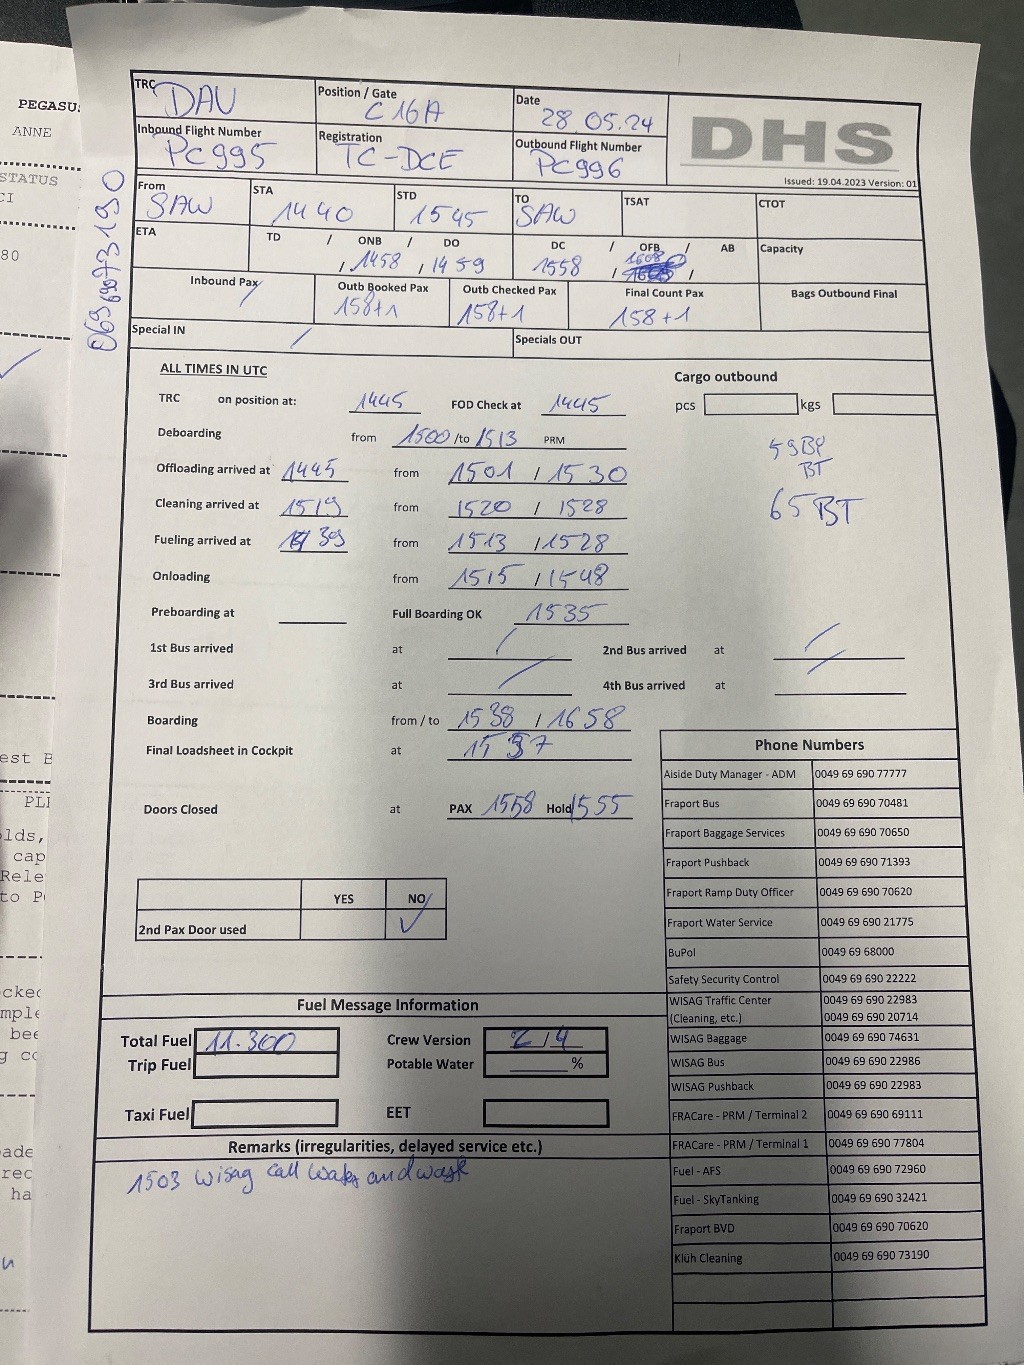 PEGASU
ANNE
STATUS
CI
80
est B
PLE
olds,
cap
Rele
to P
cked
mple
bee
g co
ade
rec
ha
06969073190
TRC DAU
Position / Gate C16A
Date 28.05.24
DHS
Issued: 19.04.2023 Version: 01
Inbound Flight Number PC995
Registration TC-DCE
Outbound Flight Number PC996
From SAW
STA 1440
STD 1545
TO SAW
TSAT
CTOT
ETA
TD / ONB / DO
, 1458 , 1459
DC / OFB / AB
1558 / 1608 /
Capacity
Inbound Pax /
Outb Booked Pax 158+1
Outb Checked Pax 158+1
Final Count Pax 158+1
Bags Outbound Final
Special IN /
Specials OUT
ALL TIMES IN UTC
Cargo outbound
TRC on position at: 1445 FOD Check at 1445
pcs kgs
Deboarding from 1500 /to 1513 PRM
59BP
BT
65BT
Offloading arrived at 1445 from 1501 / 1530
Cleaning arrived at 1519 from 1520 / 1528
Fueling arrived at 39 from 1513 / 1528
Onloading from 1515 / 1548
Preboarding at Full Boarding OK 1535
1st Bus arrived at / 2nd Bus arrived at /
3rd Bus arrived at / 4th Bus arrived at /
Boarding from / to 1538 / 1658
Final Loadsheet in Cockpit at 1537
Doors Closed at PAX 1558 Hold 1555
YES NO
2nd Pax Door used ✓
Phone Numbers
Aiside Duty Manager - ADM 0049 69 690 77777
Fraport Bus 0049 69 690 70481
Fraport Baggage Services 0049 69 690 70650
Fraport Pushback 0049 69 690 71393
Fraport Ramp Duty Officer 0049 69 690 70620
Fraport Water Service 0049 69 690 21775
BuPol 0049 69 68000
Safety Security Control 0049 69 690 22222
WISAG Traffic Center 0049 69 690 22983
(Cleaning, etc.) 0049 69 690 20714
WISAG Baggage 0049 69 690 74631
WISAG Bus 0049 69 690 22986
WISAG Pushback 0049 69 690 22983
FRACare - PRM / Terminal 2 0049 69 690 69111
FRACare - PRM / Terminal 1 0049 69 690 77804
Fuel - AFS 0049 69 690 72960
Fuel - SkyTanking 0049 69 690 32421
Fraport BVD 0049 69 690 70620
Klüh Cleaning 0049 69 690 73190
Fuel Message Information
Total Fuel 11.300 Crew Version 2/4
Trip Fuel Potable Water %
Taxi Fuel EET
Remarks (irregularities, delayed service etc.)
1503 Wisag call Water and waste